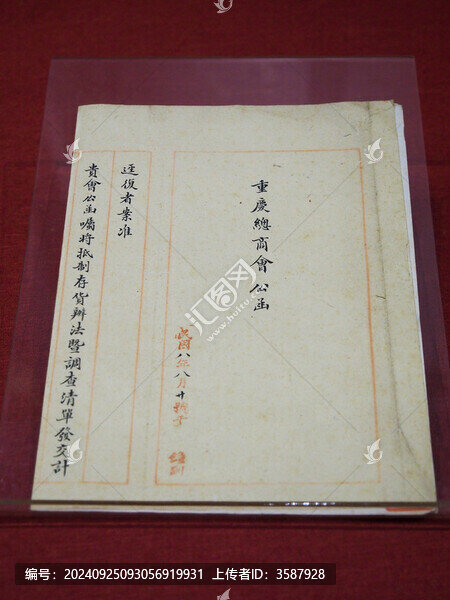 重慶總商會公函
民國八年八月廿號
逕復者案准
貴會公函囑將抵制存貨辦法暨調查清單發交計
编号：20240925093056919931 上传者ID：3587928